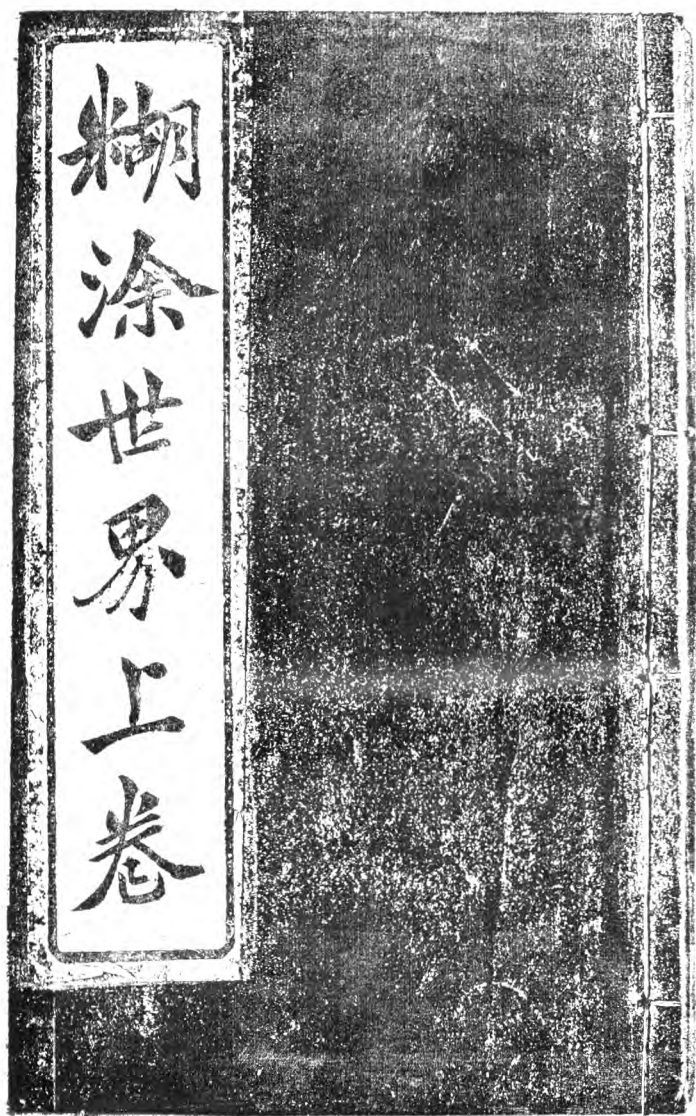 糊涂世界上卷